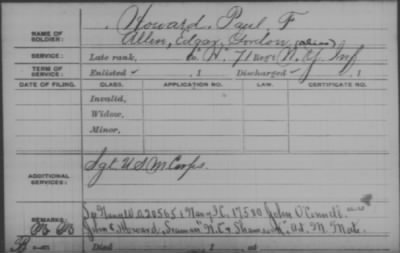 Howard, Paul F
NAME OF SOLDIER:
Allen, Edgar Gordon (alias)
SERVICE: Late rank, Co. H, 71 Reg't N. Y. Inf
TERM OF SERVICE: Enlisted , 1 Discharged , 1
DATE OF FILING. CLASS. APPLICATION NO. LAW. CERTIFICATE NO.
Invalid,
Widow,
Minor,
ADDITIONAL SERVICES: Sgt. U.S. M Corps.
REMARKS: 20565, Navy 17580 John O'Connell
John C Howard, Seaman N.C. &
Died , 1 , at